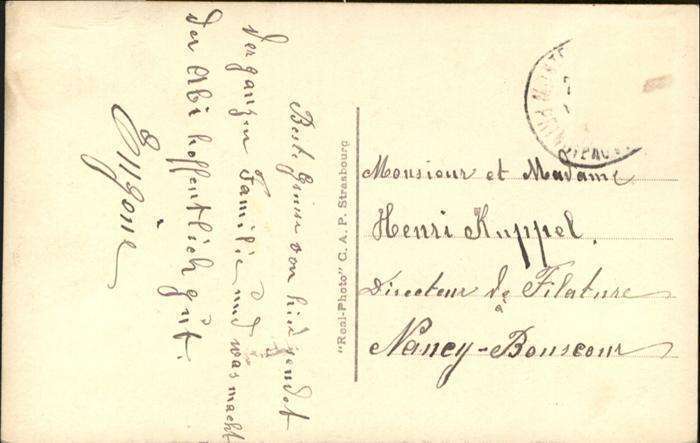 Best. Grüsse von hier sendet
der ganzen Familie und was macht
der Albi hoffentlich gut.
Eugénie
"Real-Photo" C. A. P. Strasbourg
Monsieur et Madame
Henri Kuppel.
Directeur de Filature
à
Nancy-Bonscour